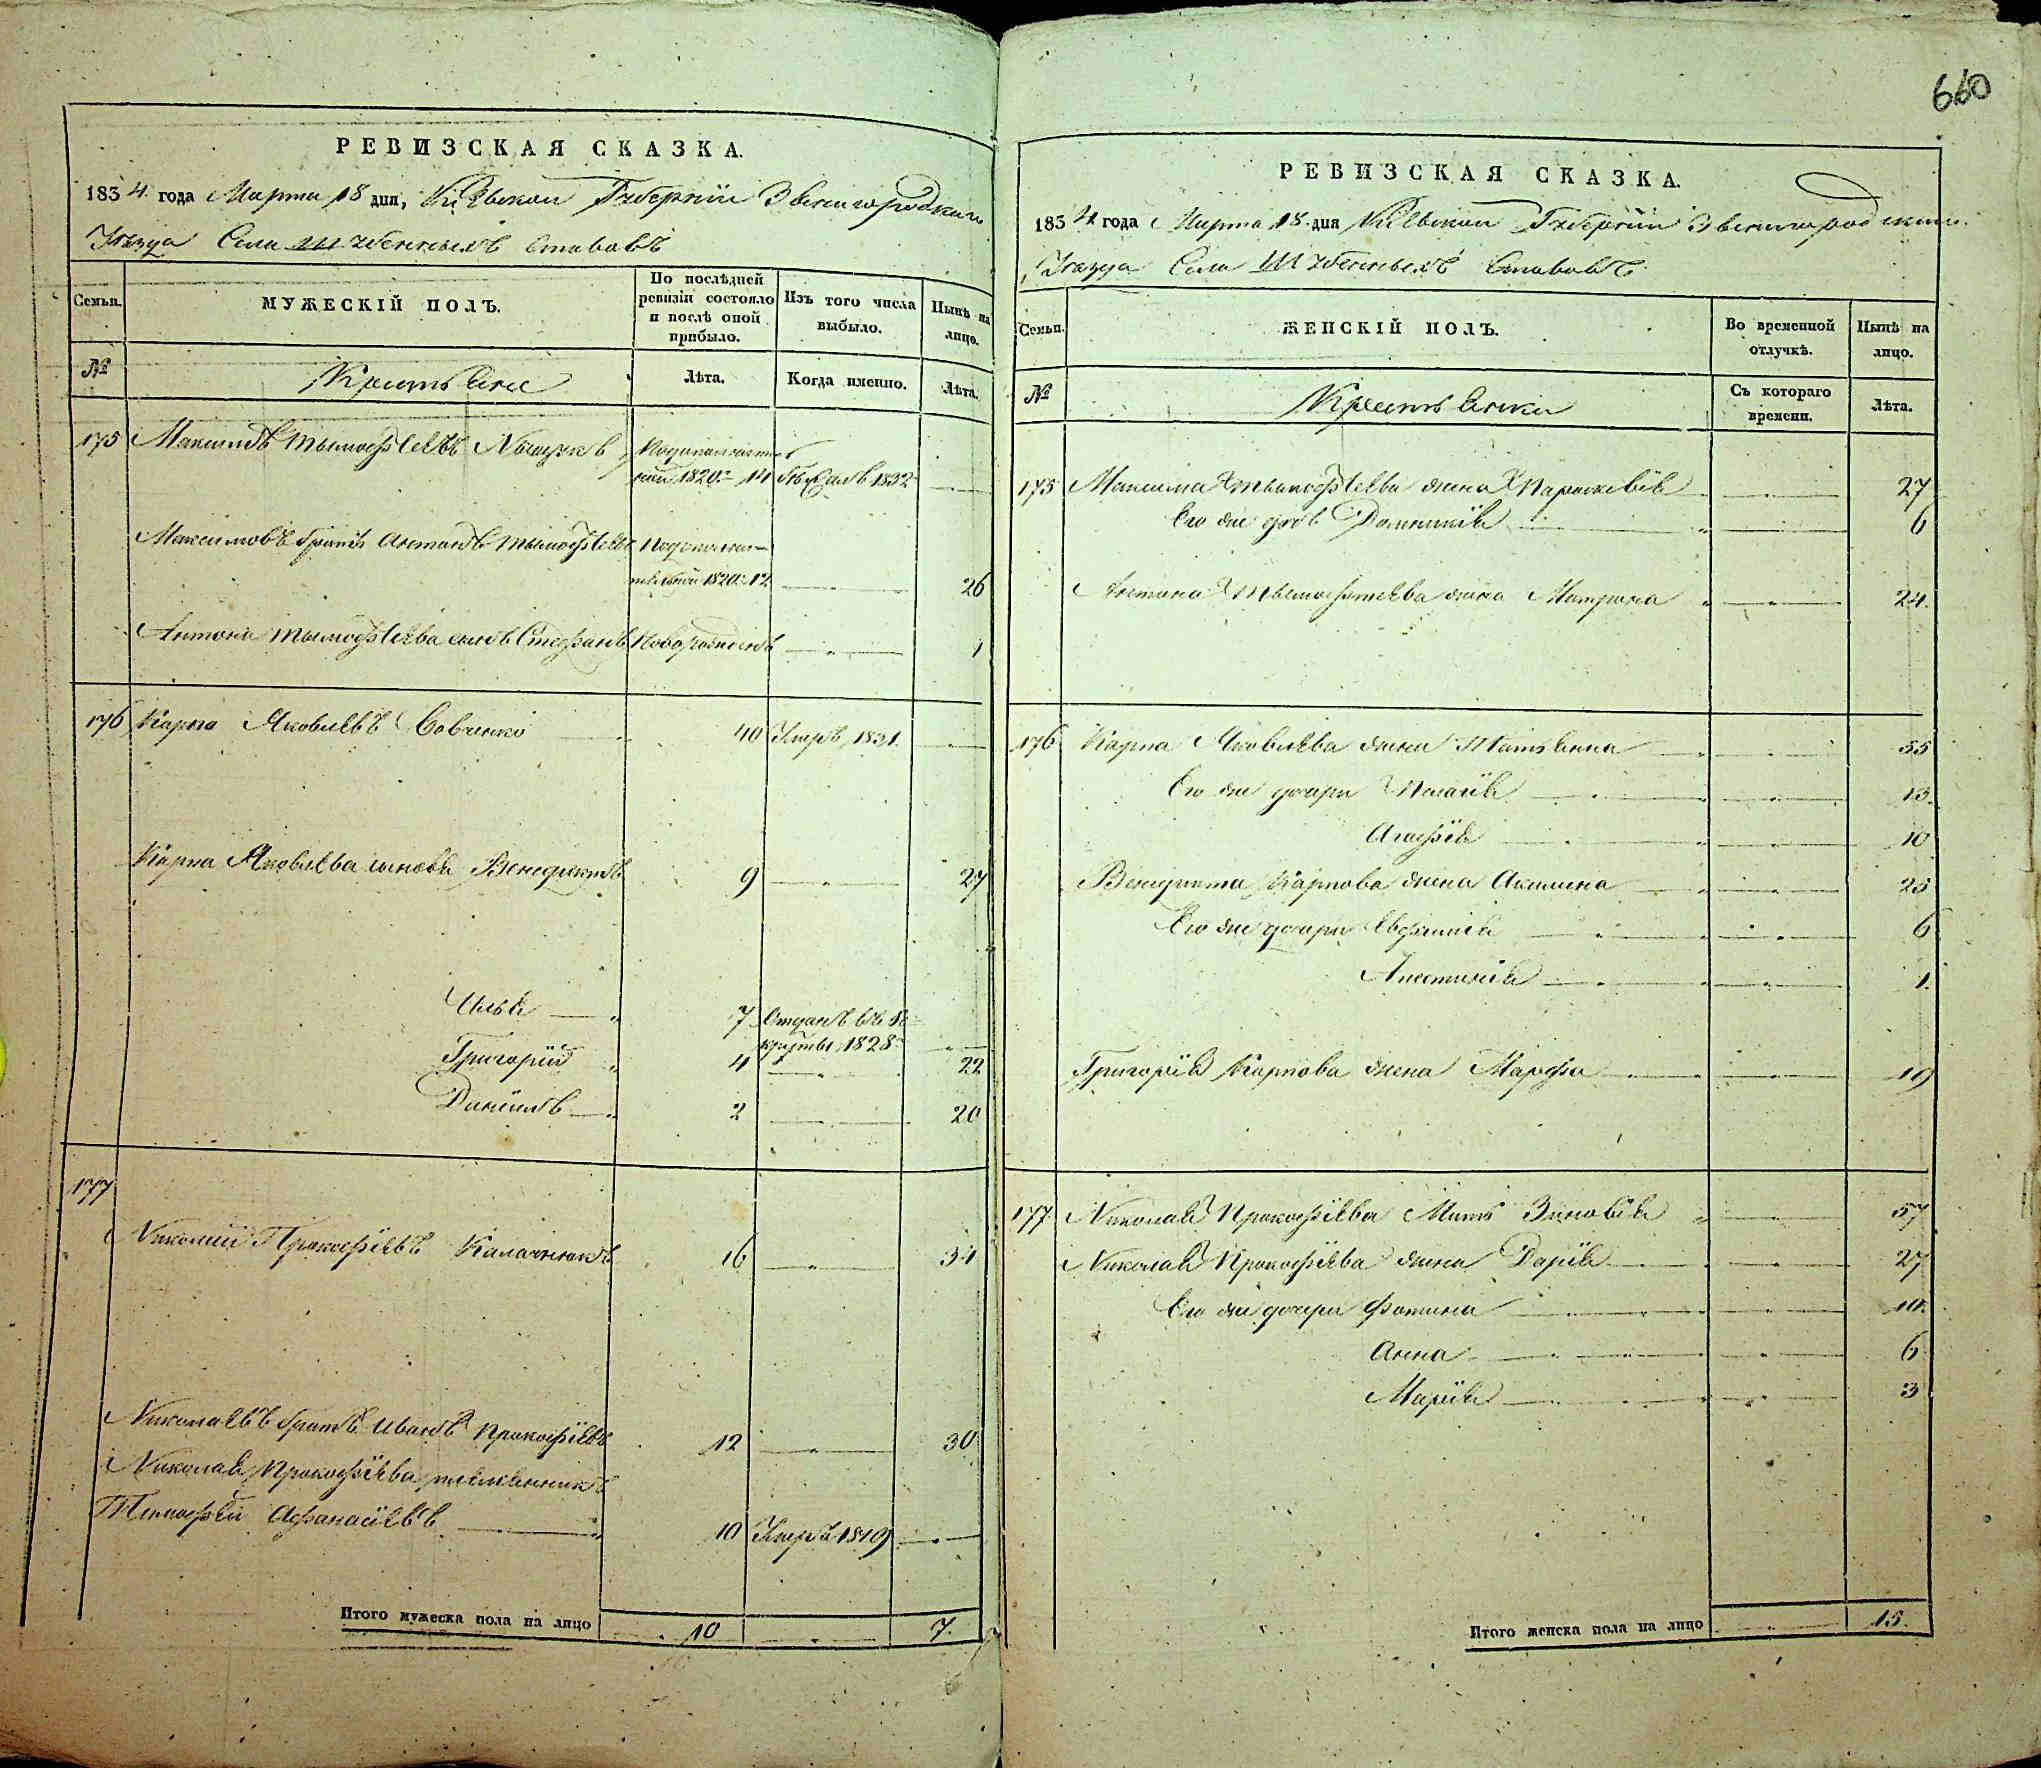 660
РЕВИЗСКАЯ СКАЗКА.
1834 года Марта 18 дня, Кіевской Губерніи Звенигородскаго
Уѣзда Села Шубенныхъ Ставовъ
Семьи.
МУЖЕСКІЙ ПОЛЪ.
По послѣдней ревизіи состояло и послѣ оной прибыло.
Изъ того числа выбыло.
Нынѣ на лицо.
№
Крестьяне
Лѣта.
Когда именно.
Лѣта.
175 Максимъ Тымофѣевъ
1820 14 Бѣжалъ 1832
Максимовъ братъ Антонъ Тымофѣевъ
1820 12 26
Антона Тымофѣева сынъ Стефанъ Новорожденъ 1
176 Карпо Яковлевъ Совченко 40 Умеръ 1831
Карпа Яковлева сыновья Венедиктъ 9 27
Илья 7 Отданъ въ Ре
круты 1828
Григорій 4 22
Даніилъ 2 20
177
Николай Прокофіевъ 16 34
Николаевъ братъ Иванъ Прокофіевъ 12 30
Николая Прокофіева племянникъ
Тимофей Афанасіевъ 10 Умеръ 1819
Итого мужеска пола на лицо 10 7.
РЕВИЗСКАЯ СКАЗКА.
1834 года Марта 18 дня Кіевской Губерніи Звенигородскаго
Уѣзда Села Шубенныхъ Ставовъ
Семьи.
ЖЕНСКІЙ ПОЛЪ.
Во временной отлучкѣ.
Нынѣ на лицо.
№
Крестьянки
Съ котораго времени.
Лѣта.
175 Максима Тымофѣева жена Параскевія 27
Его же дочь Домникія 6
Антона Тымофѣева жена Матрона 24.
176 Карпа Яковлева жена Татьянна 55
Его же дочери Пелагія 13.
Агафія 10
Венедикта Карпова жена Акилина 25
Его же дочери Евфимія 6
Анастасія 1.
Григорія Карпова жена Марфа 19
177 Николая Прокофіева Мать Зиновія 57
Николая Прокофіева жена Дарія 27
Его же дочери Фотина 10.
Анна 6
Марія 3
Итого женска пола на лицо 15.